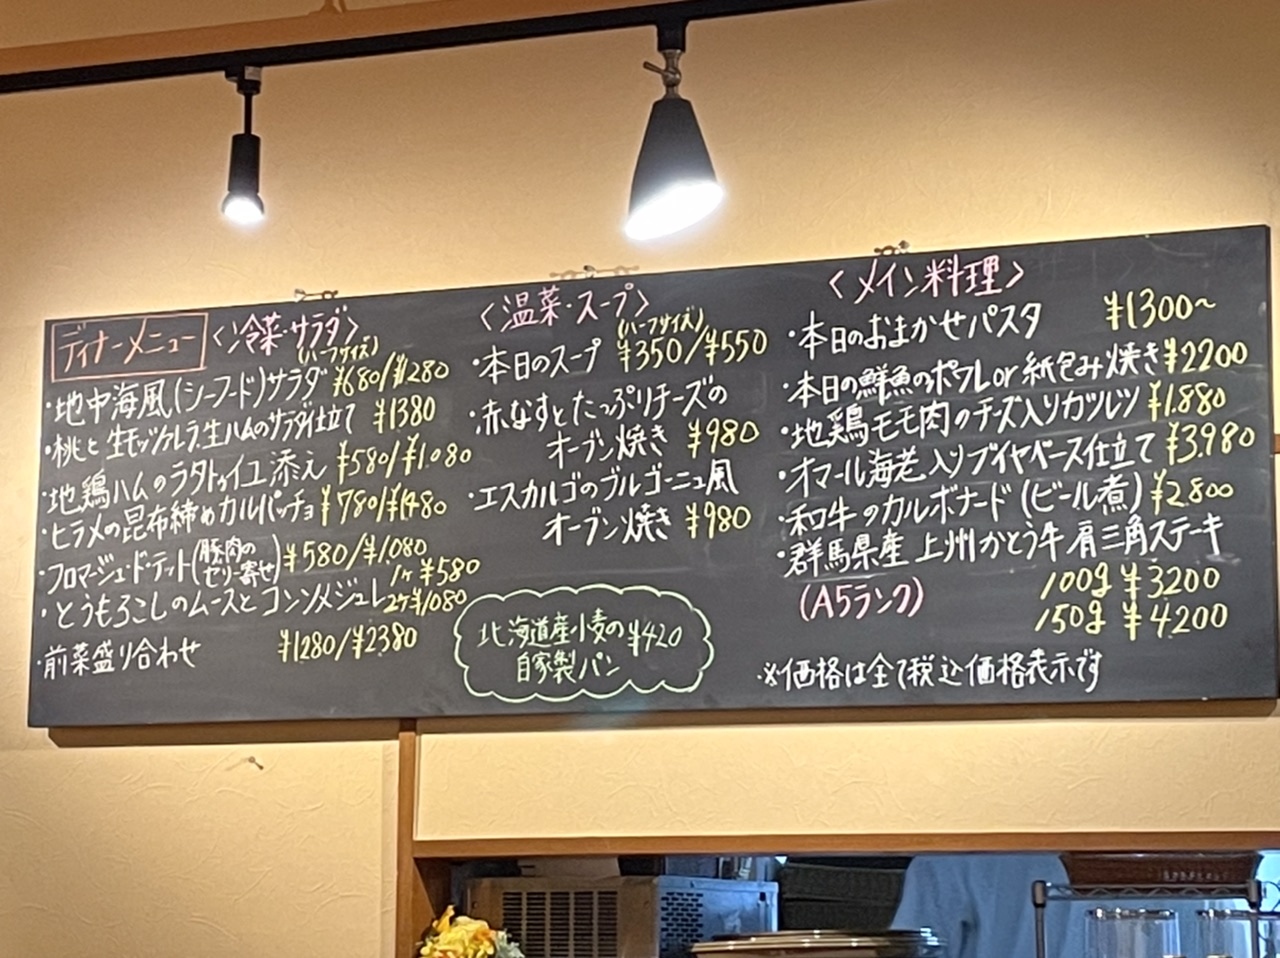 ディナーメニュー
〈冷菜・サラダ〉
(ハーフサイズ)
・地中海風(シーフード)サラダ ¥680/¥1280
・桃と生モッツァレラ、生ハムのサラダ仕立て ¥1380
・地鶏ハムのラタトゥイユ添え ¥580/¥1080
・ヒラメの昆布締めカルパッチョ ¥780/¥1480
・フロマージュ・ド・テット(豚肉のゼリー寄せ) ¥580/¥1080
・とうもろこしのムースとコンソメジュレ 1ケ¥580
2ケ¥1080
・前菜盛り合わせ ¥1280/¥2380
〈温菜・スープ〉
(ハーフサイズ)
・本日のスープ ¥350/¥550
・赤なすとたっぷりチーズの
オーブン焼き ¥980
・エスカルゴのブルゴーニュ風
オーブン焼き ¥980
北海道産小麦の ¥420
自家製パン
〈メイン料理〉
・本日のおまかせパスタ ¥1300〜
・本日の鮮魚のポワレor紙包み焼き ¥2200
・地鶏モモ肉のチーズ入りカツレツ ¥1880
・オマール海老入りブイヤベース仕立て ¥3980
・和牛のカルボナード(ビール煮) ¥2800
・群馬県産 上州かとう牛 肩三角ステーキ
(A5ランク) 100g ¥3200
150g ¥4200
※価格は全て税込価格表示です